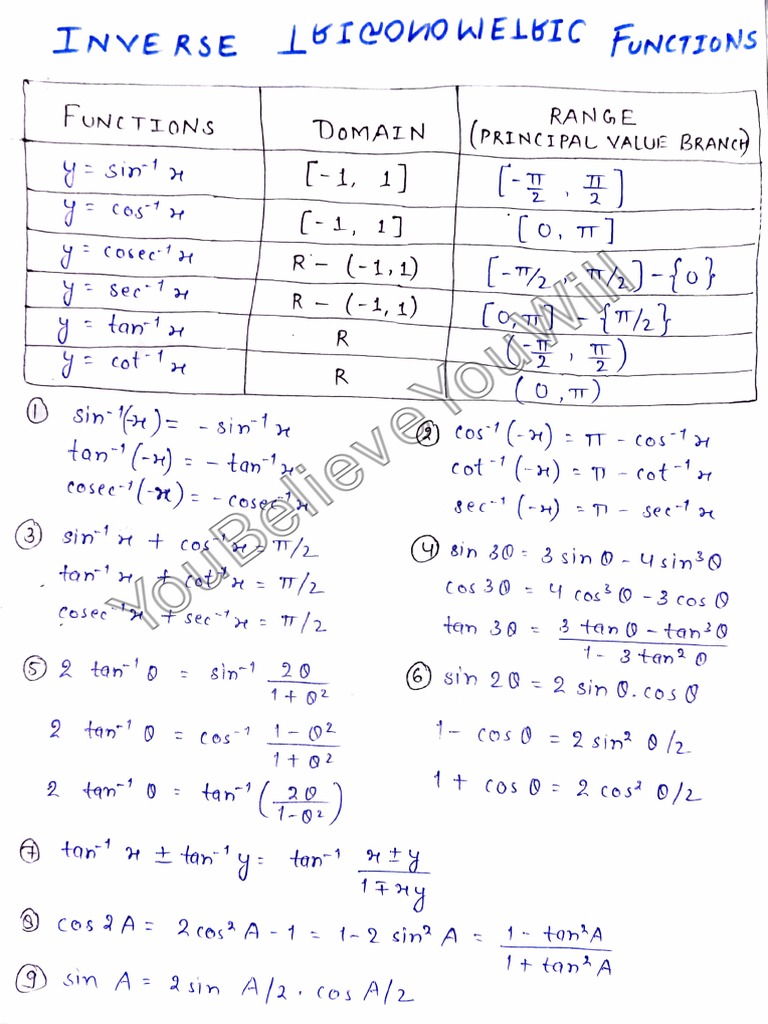 INVERSE TRIGONOMETRIC FUNCTIONS
FUNCTIONS DOMAIN RANGE (PRINCIPAL VALUE BRANCH)
y = sin⁻¹ x [-1, 1] [-π/2, π/2]
y = cos⁻¹ x [-1, 1] [0, π]
y = cosec⁻¹ x R - (-1,1) [-π/2, π/2] - {0}
y = sec⁻¹ x R - (-1,1) [0, π] - {π/2}
y = tan⁻¹ x R (-π/2, π/2)
y = cot⁻¹ x R (0, π)
① sin⁻¹(-x) = - sin⁻¹ x
tan⁻¹(-x) = - tan⁻¹ x
cosec⁻¹(-x) = - cosec⁻¹ x
② cos⁻¹(-x) = π - cos⁻¹ x
cot⁻¹(-x) = π - cot⁻¹ x
sec⁻¹(-x) = π - sec⁻¹ x
③ sin⁻¹ x + cos⁻¹ x = π/2
tan⁻¹ x + cot⁻¹ x = π/2
cosec⁻¹ x + sec⁻¹ x = π/2
④ sin 3θ = 3 sin θ - 4 sin³ θ
cos 3θ = 4 cos³ θ - 3 cos θ
tan 3θ = (3 tan θ - tan³ θ)/(1 - 3 tan² θ)
⑤ 2 tan⁻¹ θ = sin⁻¹ 2θ/(1 + θ²)
2 tan⁻¹ θ = cos⁻¹ (1 - θ²)/(1 + θ²)
2 tan⁻¹ θ = tan⁻¹ (2θ/(1 - θ²))
⑥ sin 2θ = 2 sin θ . cos θ
1 - cos θ = 2 sin² θ/2
1 + cos θ = 2 cos² θ/2
⑦ tan⁻¹ x ± tan⁻¹ y = tan⁻¹ (x ± y)/(1 ∓ xy)
⑧ cos 2A = 2 cos² A - 1 = 1 - 2 sin² A = (1 - tan² A)/(1 + tan² A)
⑨ sin A = 2 sin A/2 . cos A/2
YouBelieveYouWill